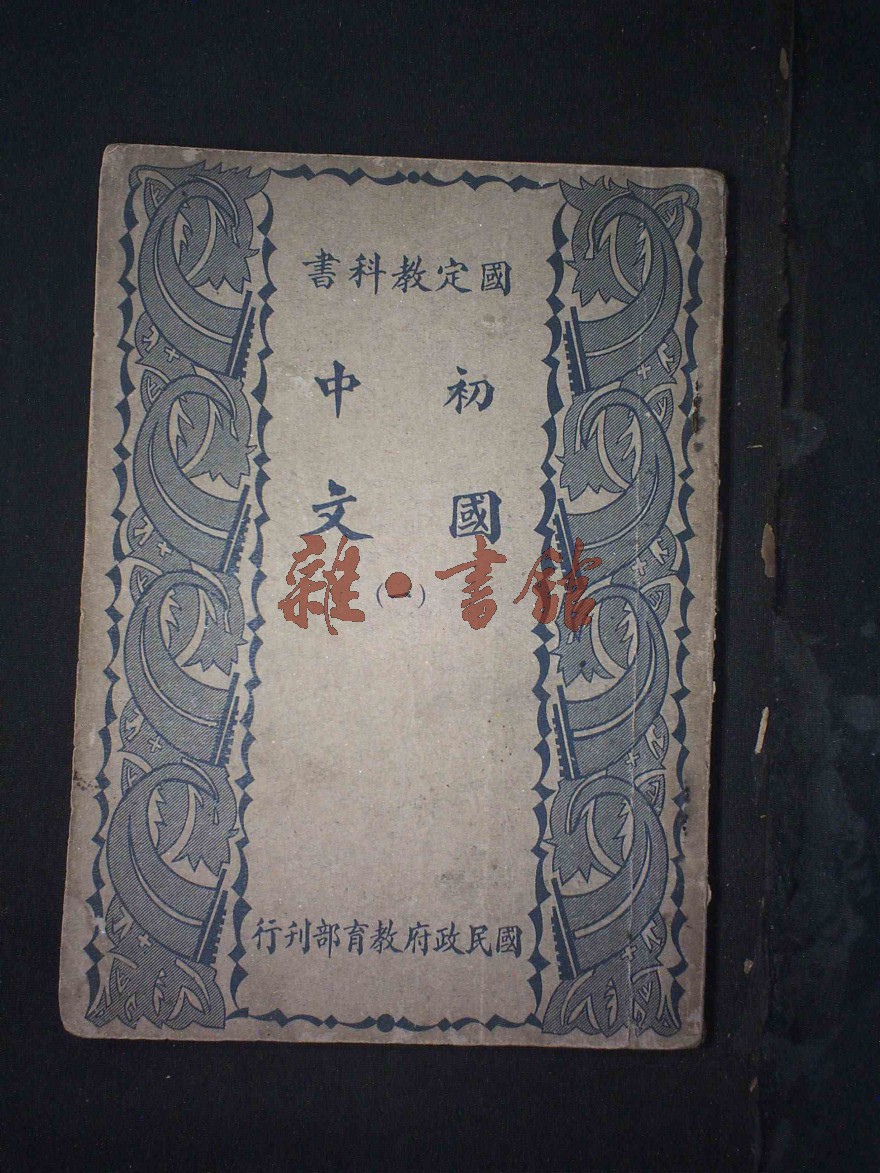 國定教科書
初中
國文
(一)
雜·書館
國民政府教育部刊行